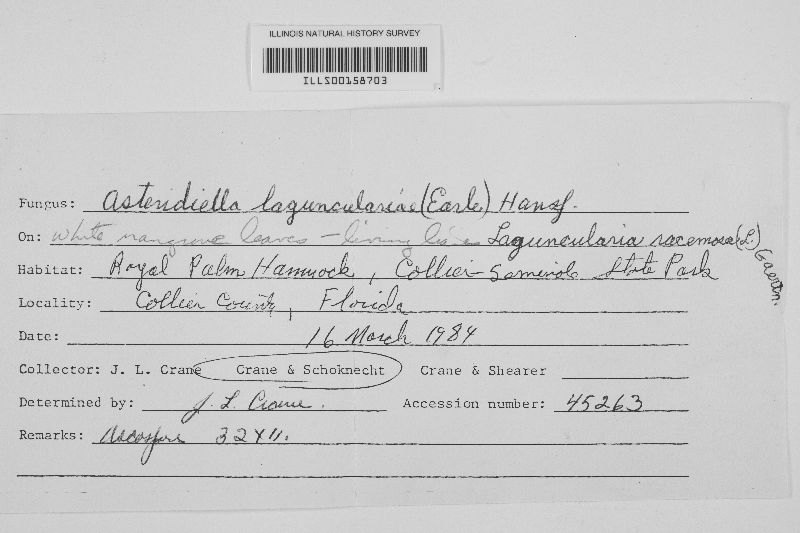 ILLINOIS NATURAL HISTORY SURVEY
ILLS00158703
Fungus: Asteridiella lagunculariae (Earle) Hansf.
On: white mangrove leaves - living Laguncularia racemosa (L.) Gaertn.
Habitat: Royal Palm Hammock, Collier-Seminole State Park
Locality: Collier County, Florida
Date: 16 March 1984
Collector: J. L. Crane Crane & Schoknecht Crane & Shearer
Determined by: J. L. Crane. Accession number: 45263
Remarks: Ascospore 32x11.